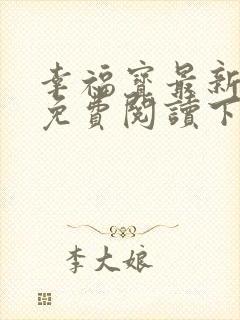 幸福寶最新
免費閱讀下
李大娘